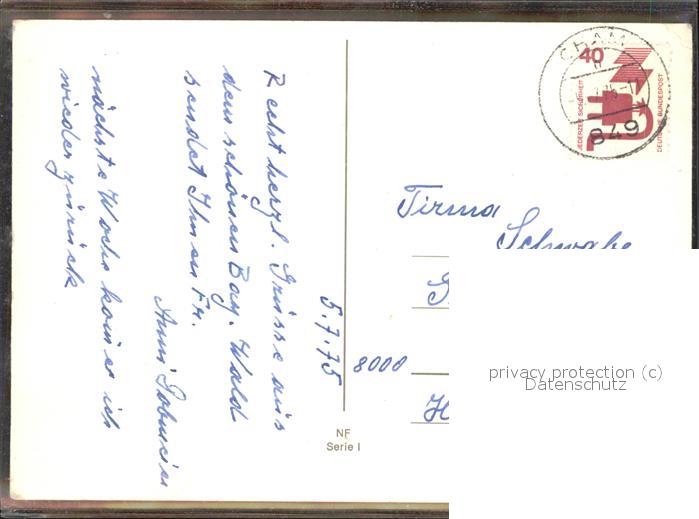 5.7.75
Recht herzl. Grüsse aus
dem schönen Bay. Wald
sendet Ihnen Fr.
Anni
nächste Woche komme ich
wieder zurück
CHAM
849
40
JEDERZEIT SICHERHEIT
DEUTSCHE BUNDESPOST
Firma
Schwabe
8000
NF
Serie I
privacy protection (c)
Datenschutz